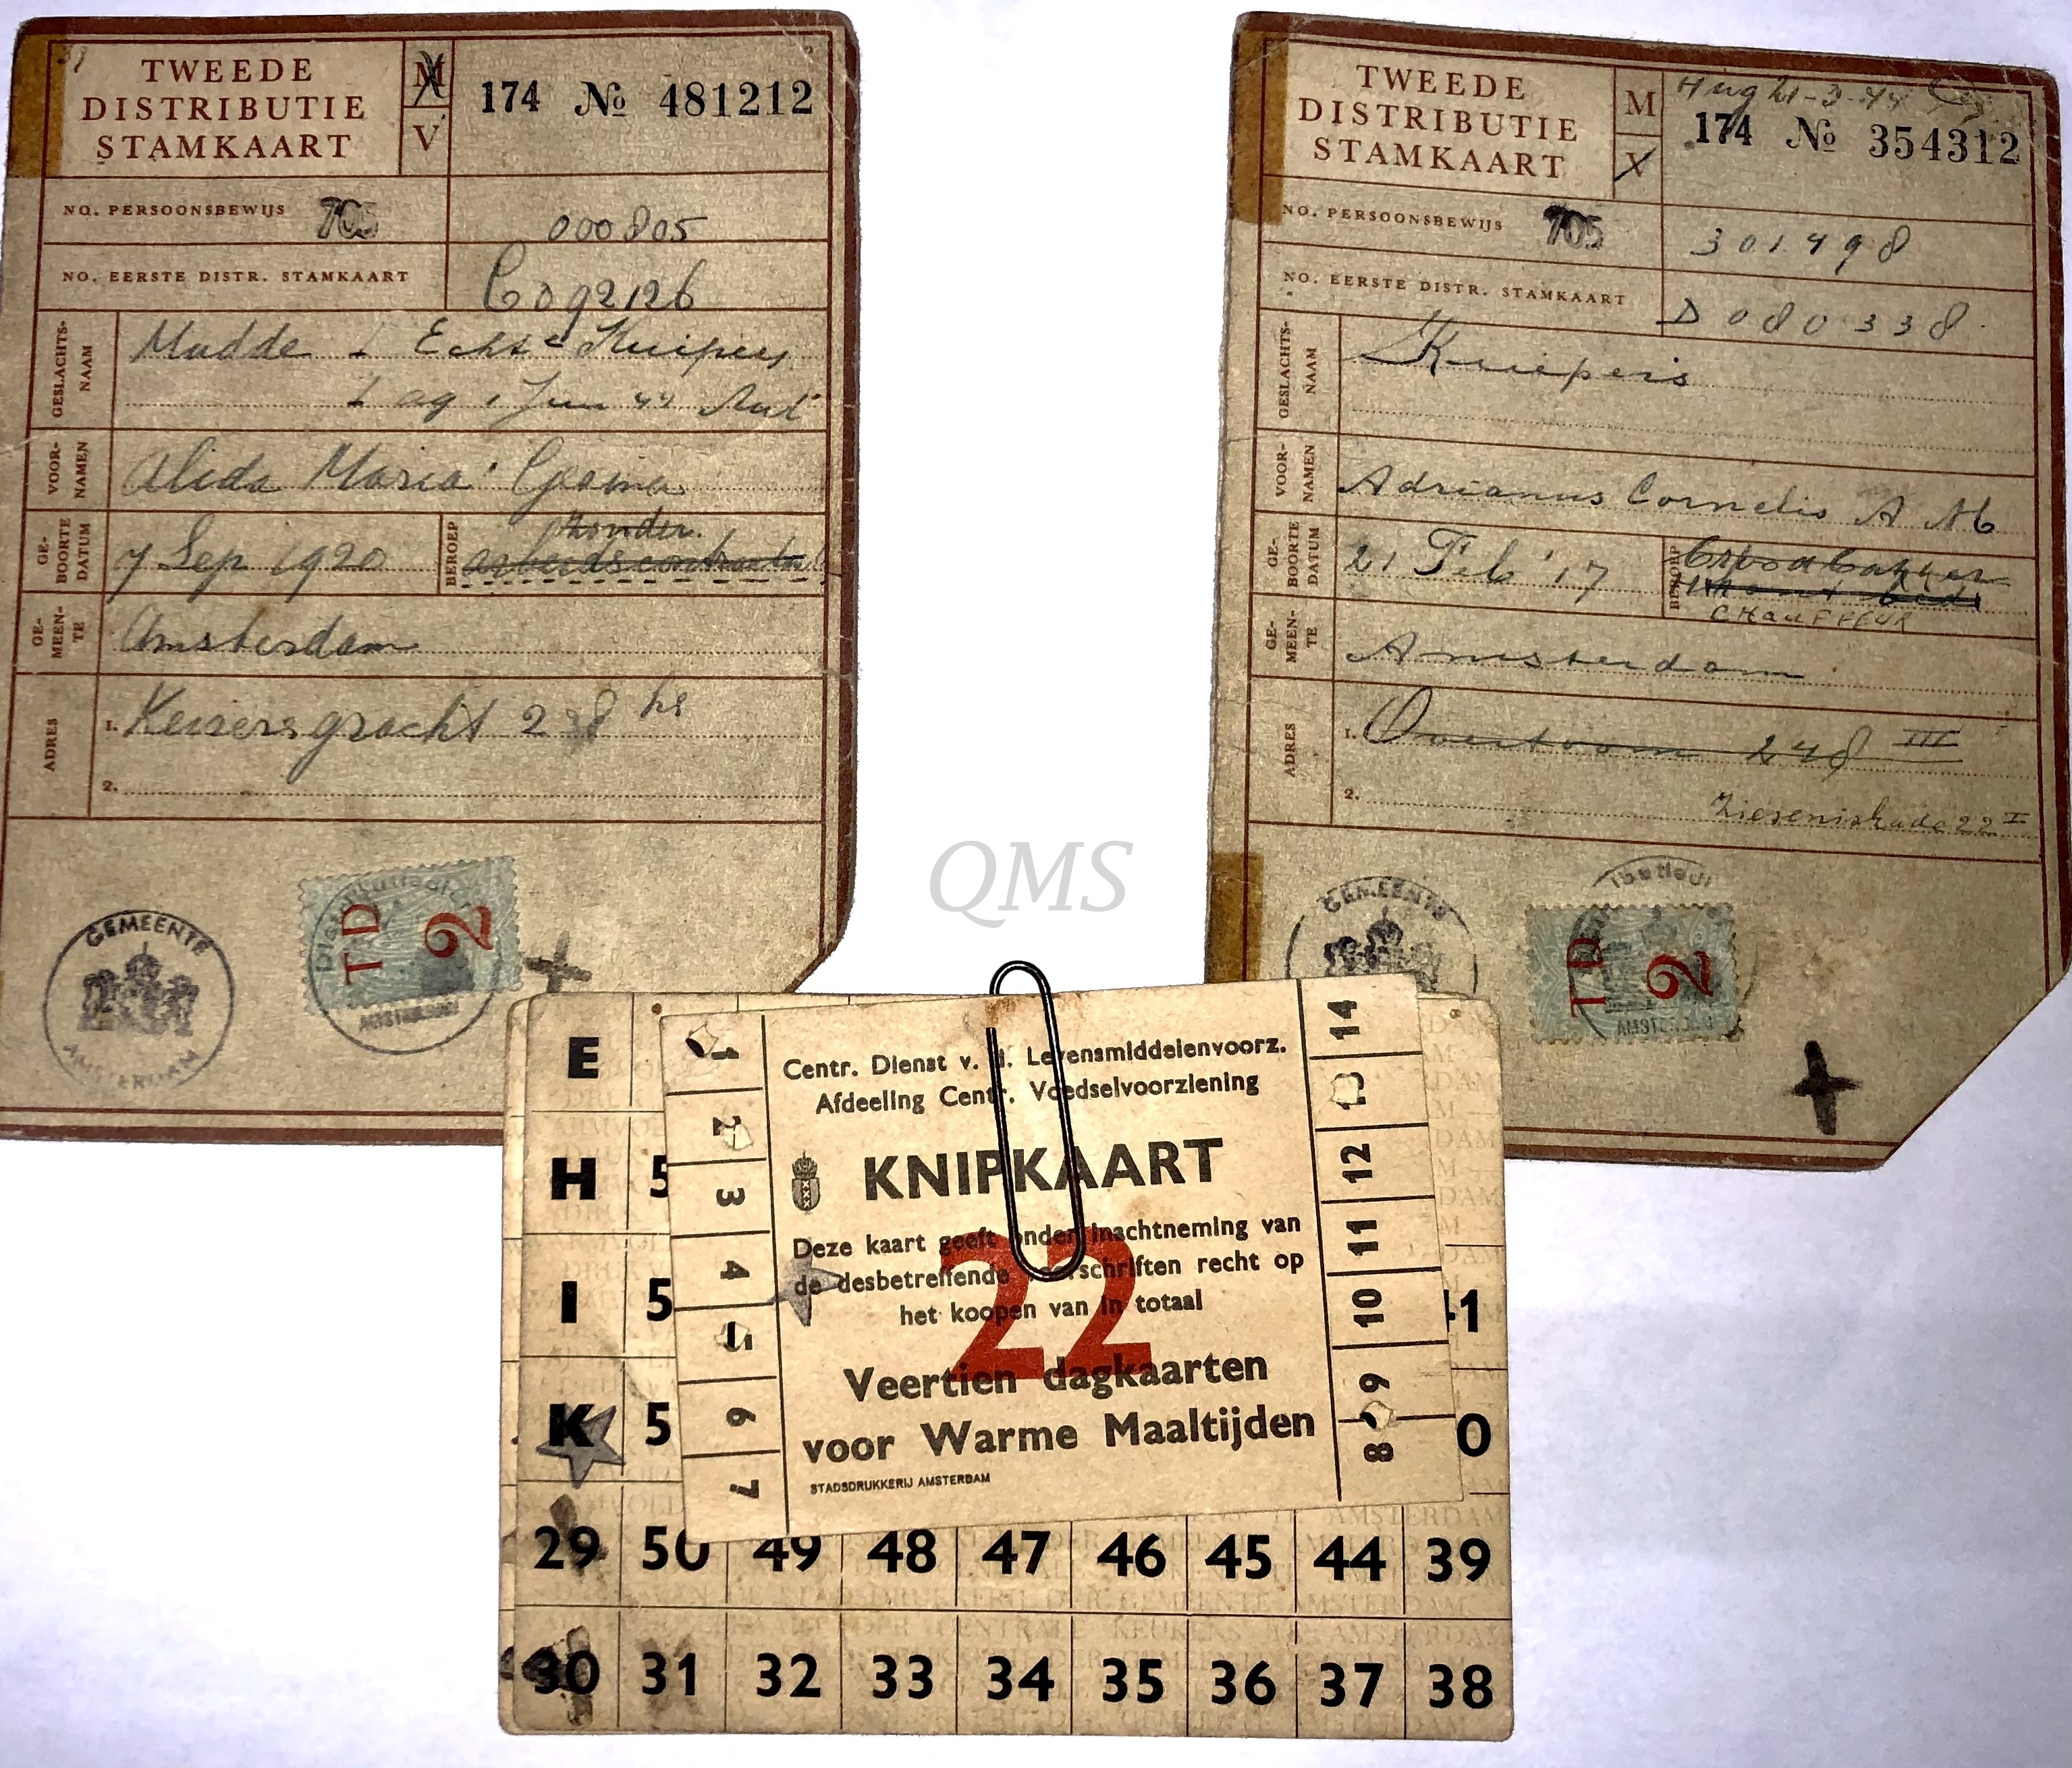 TWEEDE
DISTRIBUTIE
STAMKAART
M
V
174 № 481212
NO. PERSOONSBEWIJS 705 000805
NO. EERSTE DISTR. STAMKAART C092126
GESLACHTS-
NAAM
Mudde Echt Kuipers
Jun 44
VOOR-
NAMEN
Alida Maria Gesina
GE-
BOORTE
DATUM
7 Sep 1920
BEROEP
zonder.
arbeidscontractn
GE-
MEEN-
TE
Amsterdam
ADRES
1. Keizersgracht 2 8 hs
2.
GEMEENTE
AMSTERDAM
TD
2
AMSTERDAM
TWEEDE
DISTRIBUTIE
STAMKAART
M
V
21-3-44
174 № 354312
NO. PERSOONSBEWIJS 705 301498
NO. EERSTE DISTR. STAMKAART D 080338
GESLACHTS-
NAAM
Kuipers
VOOR-
NAMEN
Adrianus Cornelis A M
GE-
BOORTE
DATUM
21 Feb '17
BEROEP
CHAUFFEUR
GE-
MEEN-
TE
Amsterdam
ADRES
1. Overtoom 248 III
2.
Zieseniskade 22 I
GEMEENTE
TD
2
AMSTERDAM
QMS
Centr. Dienst v. d. Levensmiddelenvoorz.
Afdeeling Centr. Voedselvoorziening
KNIPKAART
Deze kaart geeft onder inachtneming van
de desbetreffende voorschriften recht op
het koopen van in totaal
22
Veertien dagkaarten
voor Warme Maaltijden
STADSDRUKKERIJ AMSTERDAM
1
2
3
4
5
6
7
14
13
12
11
10
9
8
E
H 5
I 5 41
K 5 0
29 50 49 48 47 46 45 44 39
30 31 32 33 34 35 36 37 38